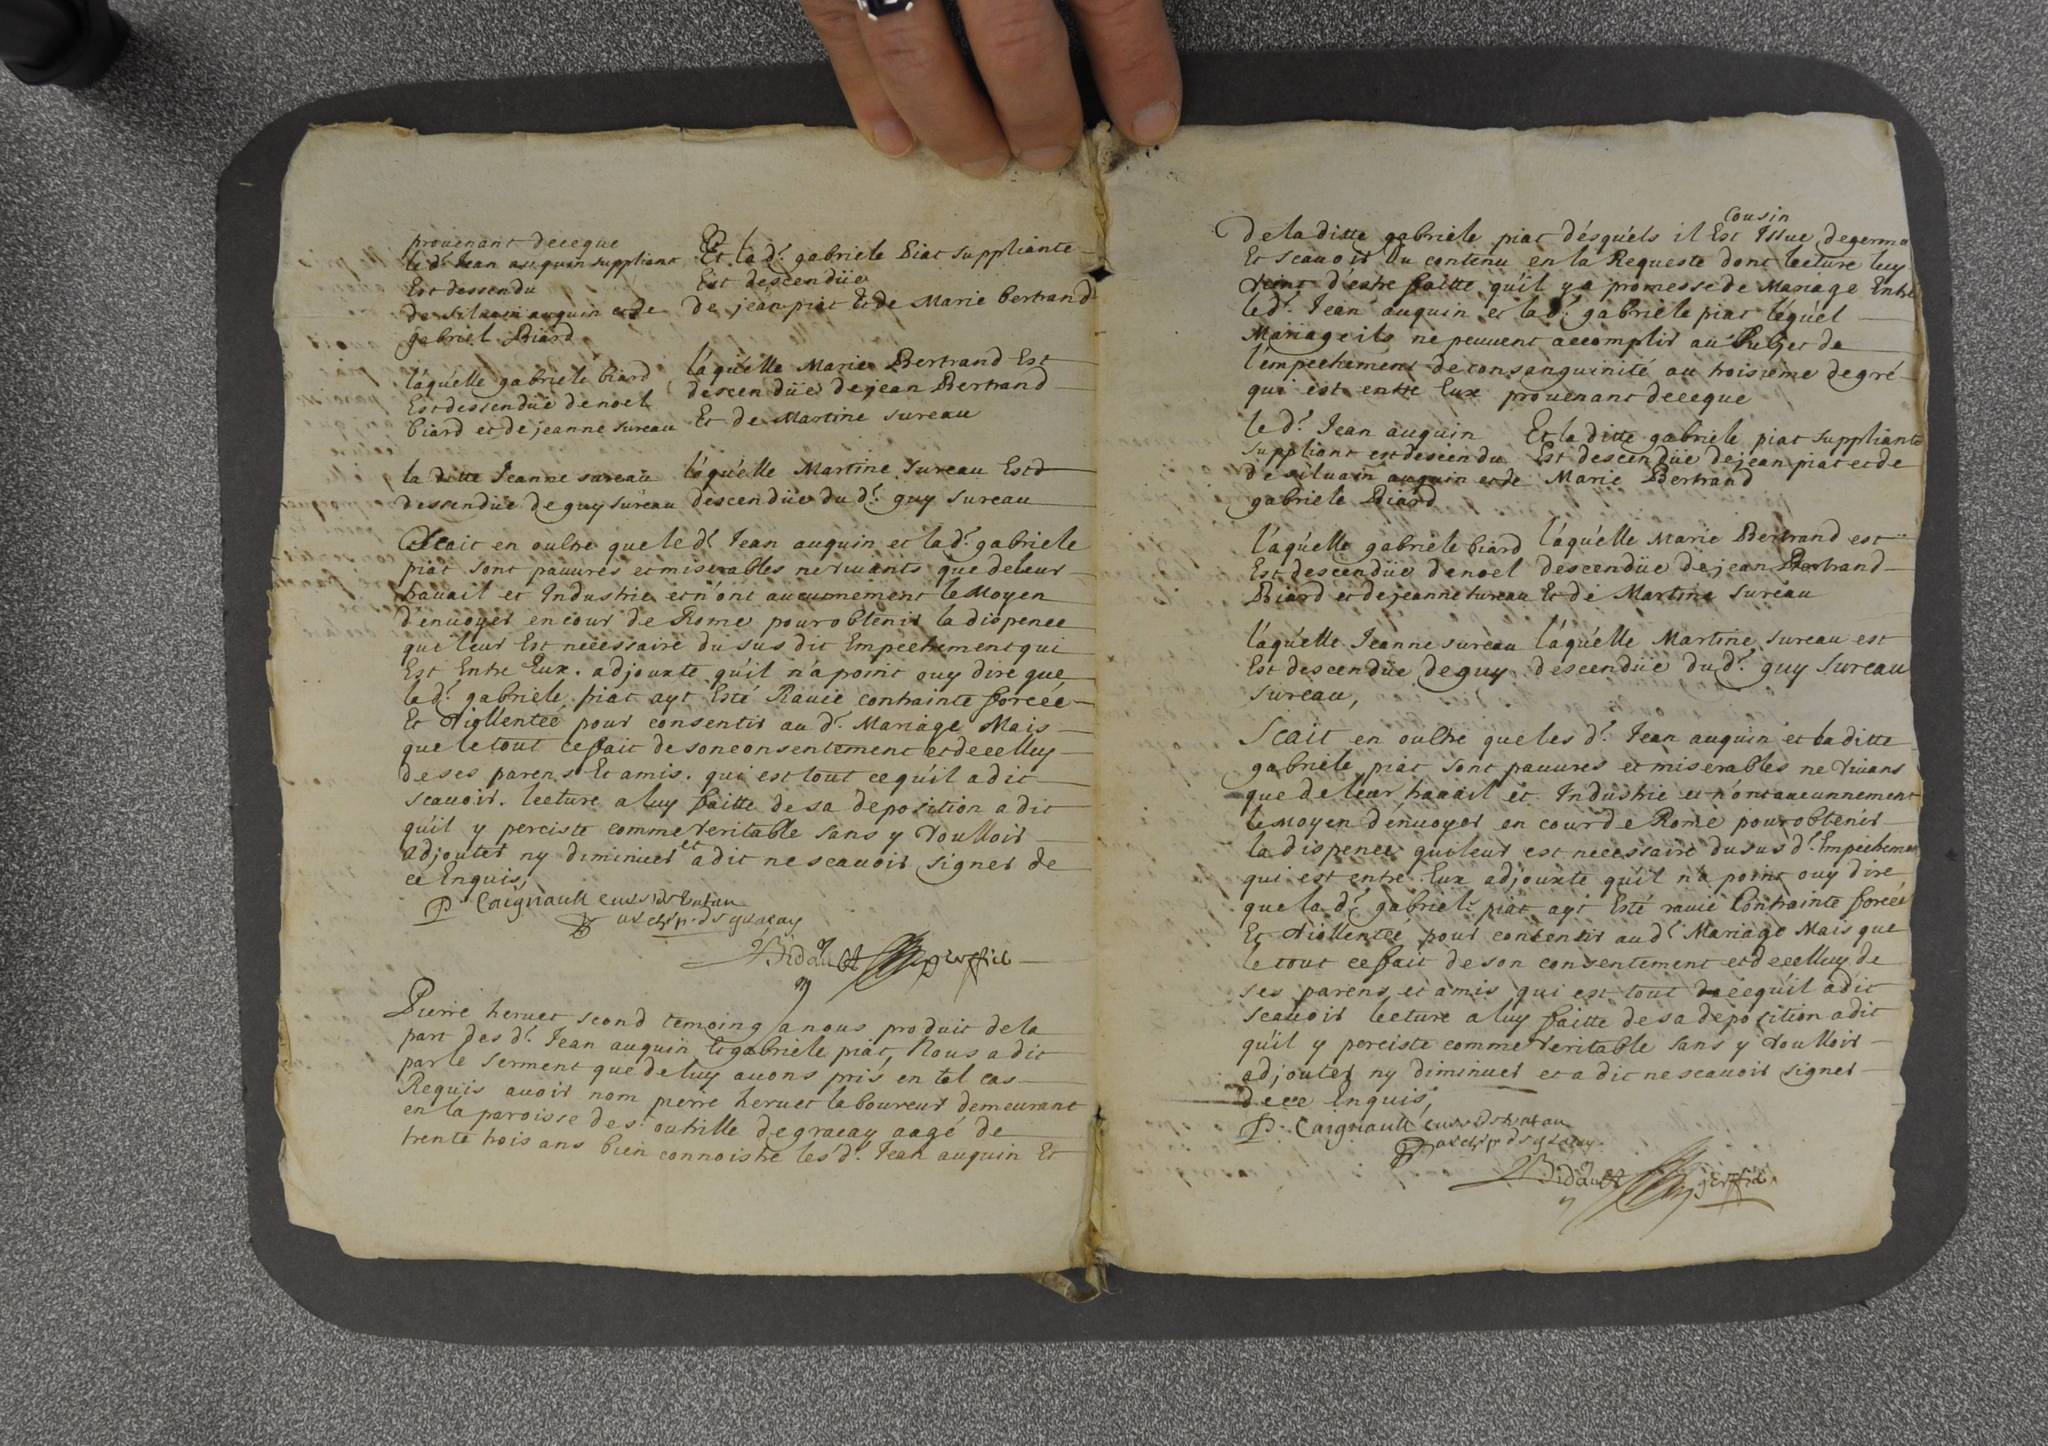 provenant deceque
le d.^t Jean auquin suppliant
Est dessendu
de siluain auquin et de
gabriel Biard
Et la d.^t gabriele Piat suppliante
Est descendüe
de jean piat Et de Marie bertrand
laquelle gabriele biard
Est dessendüe de noel
biard et de jeanne sureau
laquelle Marie Bertrand Est
descendüe de jean Bertrand
Et de Martine sureau
la ditte Jeanne sureau
dessendüe de guy sureau
léquélle Martine sureau Est
descendüe du d.^t guy sureau
Scait en oultre que le d.^t Jean auquin et la d.^t gabriele
piat sont pauures et miserables ne viuants que de leur
trauail et Industrie et n'ont aucunement le Moyen
d'enuoyer en cour de Rome pour obtenir la dispence
qui leur Est necessaire du sus dit Empechement qui
Est Entre Eux. adjouxte qu'il n'a point ouy dire que
le d.^t gabriele piat ayt Esté Rauie contrainte forcée
Et viollentée pour consentir au d.^t Mariage Mais
que le tout ce fait de son consentement et de celluy
de ses parens Et amis. qui est tout ce qu'il a dit
scauoir. lecture a luy faitte de sa deposition a dit
qu'il y perciste comme veritable sans y voulloir
adjouter ny diminuer et a dit ne scauoir signer de
ce Enquis,
P. Caignault
Bidault
Pierre heruet scond temoing a nous produit de la
part des d.^t Jean auquin Et gabriele piat, Nous a dit
par le serment que de luy auons pris en tel cas
Requis auoir nom pierre heruet laboureur demeurant
en la paroisse de s.^t outrille de gracay aagé de
trente trois ans bien connoistre les d.^t Jean auquin Et
de la ditte gabriele piat désquéls il Est Issue de germa
Cousin
Et scauoir du contenu en la Requeste dont lecture luy
vient d'estre faitte qu'il y a promesse de Mariage Entre
le d.^t Jean auquin et la d.^t gabriele piat léquél
Mariage ils ne peuuent accomplir au subjet de
l'empechement de consanguinité au troisieme degré
qui est entre Eux provenant deceque
le d.^t Jean auquin
suppliant est descendu
de siluain auquin et de
gabriele Biard
Et la ditte gabriele piat suppliante
Est descendüe de jean piat et de
Marie Bertrand
laquélle gabriele biard
Est descendüe de noel
Biard et de jeanne sureau
laquélle Marie Bertrand est
descendüe de jean Bertrand
Et de Martine sureau
laquélle Jeanne sureau
Est descendüe de guy
sureau,
laquélle Martine sureau est
descendüe du d.^t guy sureau
Scait en oultre que les d.^t Jean auquin et la ditte
gabriele piat sont pauures et miserables ne viuans
que de leur trauail et Industrie et n'ont aucunnement
le Moyen d'enuoyer en cour de Rome pour obtenir
la dispence qui leur est necessaire du sus d.^t Empecheme
qui est entre Eux adjouxte qu'il n'a point ouy dire
que la d.^t gabriele piat ayt Esté rauie Contrainte forcée
Et viollentée pour consentir au d.^t Mariage Mais que
le tout ce fait de son consentement et de celluy de
ses parens et amis qui est tout de ce qu'il a dit
scauoir lecture a luy faitte de sa deposition a dit
qu'il y perciste comme veritable sans y voulloir
adjouter ny diminuer et a dit ne scauoir signer
de ce Enquis,
P. Caignault
Bidault